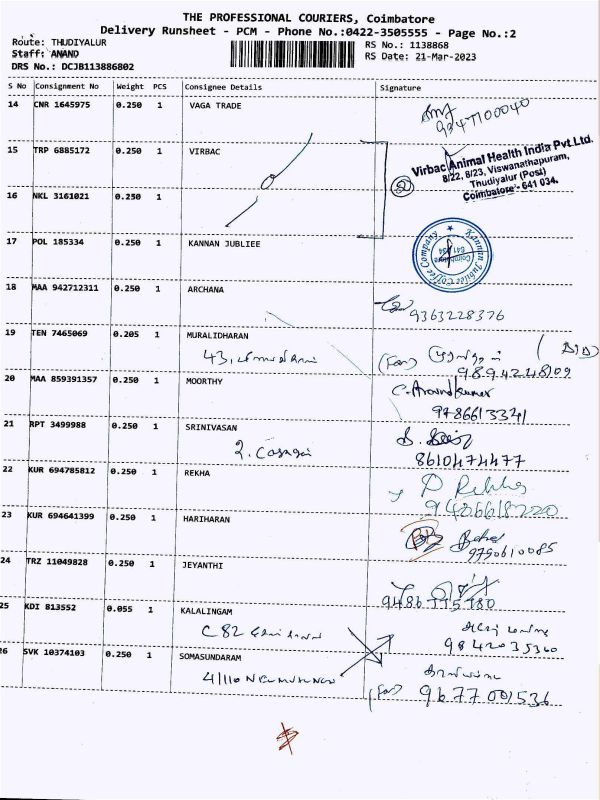 THE PROFESSIONAL COURIERS, Coimbatore
Delivery Runsheet - PCM - Phone No.:0422-3505555 - Page No.:2
Route: THUDIYALUR
RS No.: 1138868
Staff: ANAND
RS Date: 21-Mar-2023
DRS No.: DCJB113886802
S No Consignment No Weight PCS Consignee Details Signature
14 CNR 1645975 0.250 1 VAGA TRADE
15 TRP 6885172 0.250 1 VIRBAC
Virbac Animal Health India Pvt.Ltd.
8/22, 8/23, Viswanathapuram,
Thudiyalur (Post)
Coimbatore - 641 034.
16 NKL 3161021 0.250 1
17 POL 185334 0.250 1 KANNAN JUBLIEE
Kannan Jubilee Coffee Company
Coimbatore
641 034
18 MAA 942712311 0.250 1 ARCHANA
9363228376
19 TEN 7465069 0.205 1 MURALIDHARAN
43,
(For)
9894248109
20 MAA 859391357 0.250 1 MOORTHY
C. Aravindkumar
9786613341
21 RPT 3499988 0.250 1 SRINIVASAN
8610474477
22 KUR 694785812 0.250 1 REKHA
P Rekha
9486618220
23 KUR 694641399 0.250 1 HARIHARAN
9750610085
24 TRZ 11049828 0.250 1 JEYANTHI
9486 775780
25 KDI 813552 0.055 1 KALALINGAM
C 82
9842035360
26 SVK 10374103 0.250 1 SOMASUNDARAM
4/110
(For) 9677001536